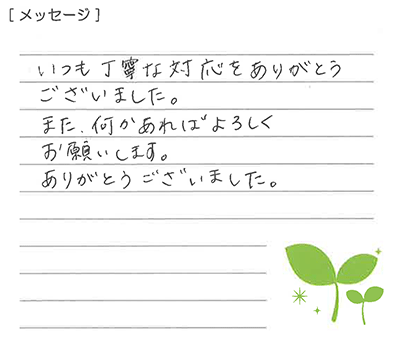 [メッセージ]
いつも丁寧な対応をありがとう
ございました。
また、何かあればよろしく
お願いします。
ありがとうございました。